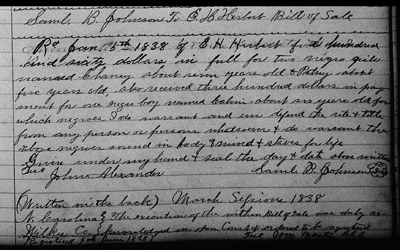 Saml. B. Johnson To E H Herbert Bill of Sale
Jan. 15th 1838 of E. H. Herbert five hundred
and sixty dollars in full for two negro girls
named Chaney about seven years old & Patsey about
five years old, also received three hundred dollars in pay
ment for one negro boy named Calvin about six years old for
which negroes I do warrant and ever defend the rite & title
from any person or persons whatsoever & do warrant the
above negroes sound in body & mind & slaves for life
Given under my hand & seal the day & date above written
Test
John Alexander Saml. B. Johnson
(Written in the back) March Sessions 1838
N. Carolina } The execution of the within Bill of Sale was duly
Wilkes Co. } acknowledged in open Court & ordered to be registered
Registered June 1838 Test Wm